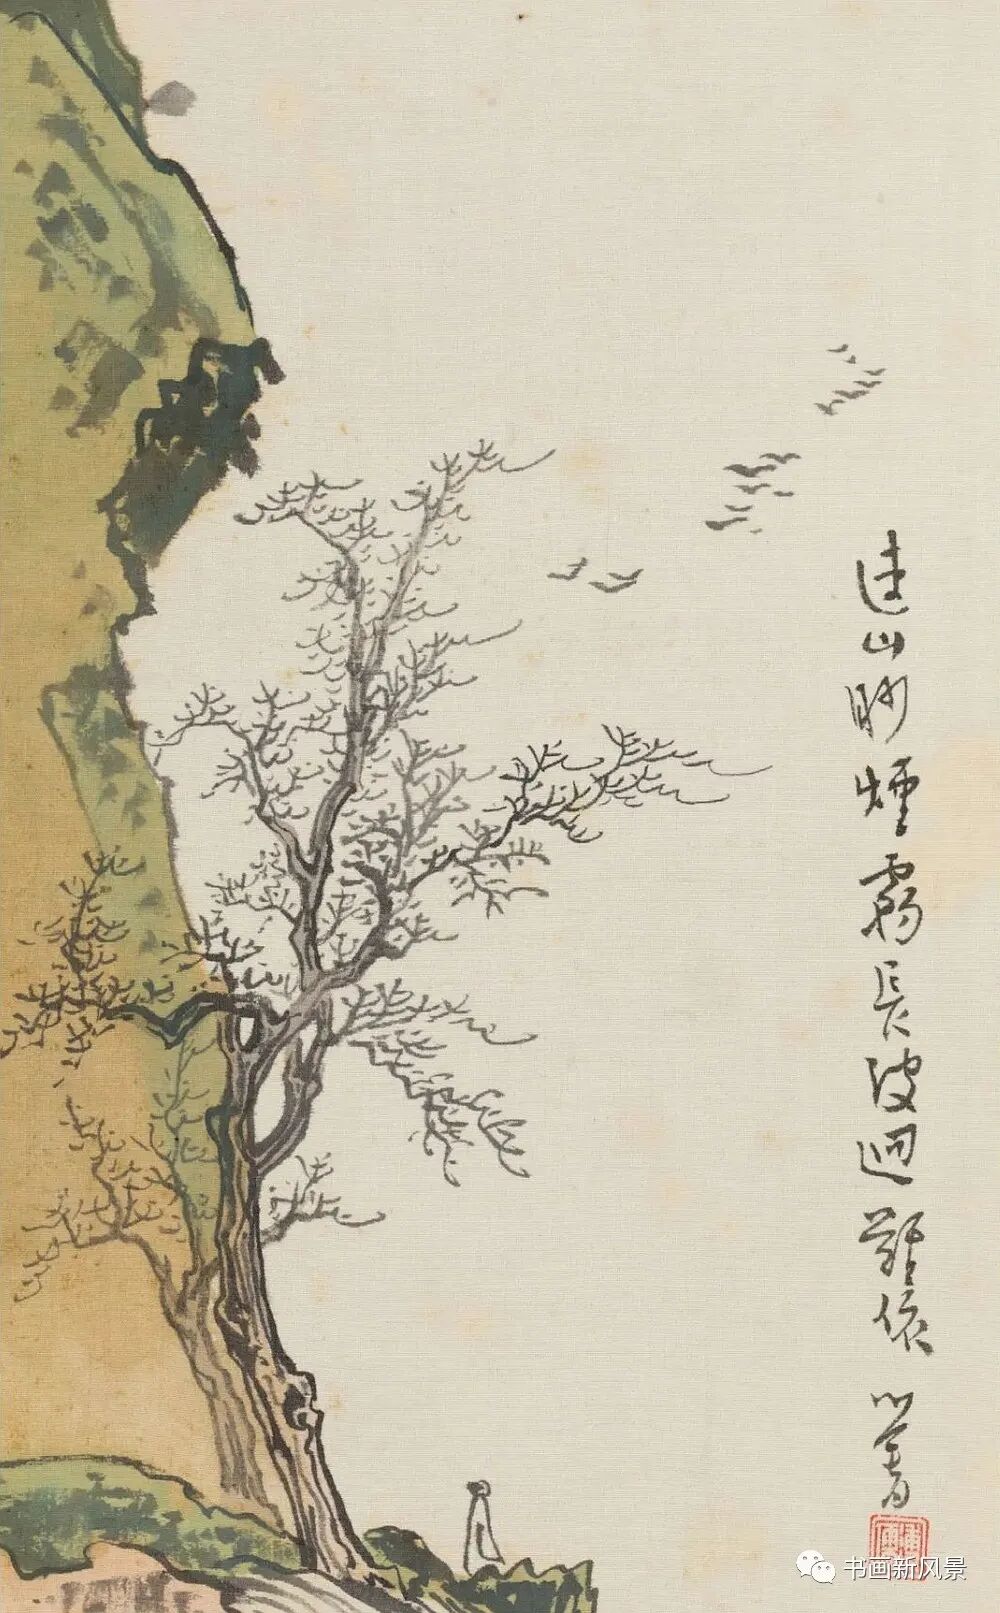 遠山眇煙霧長波迥難依 心畬
书画新风景